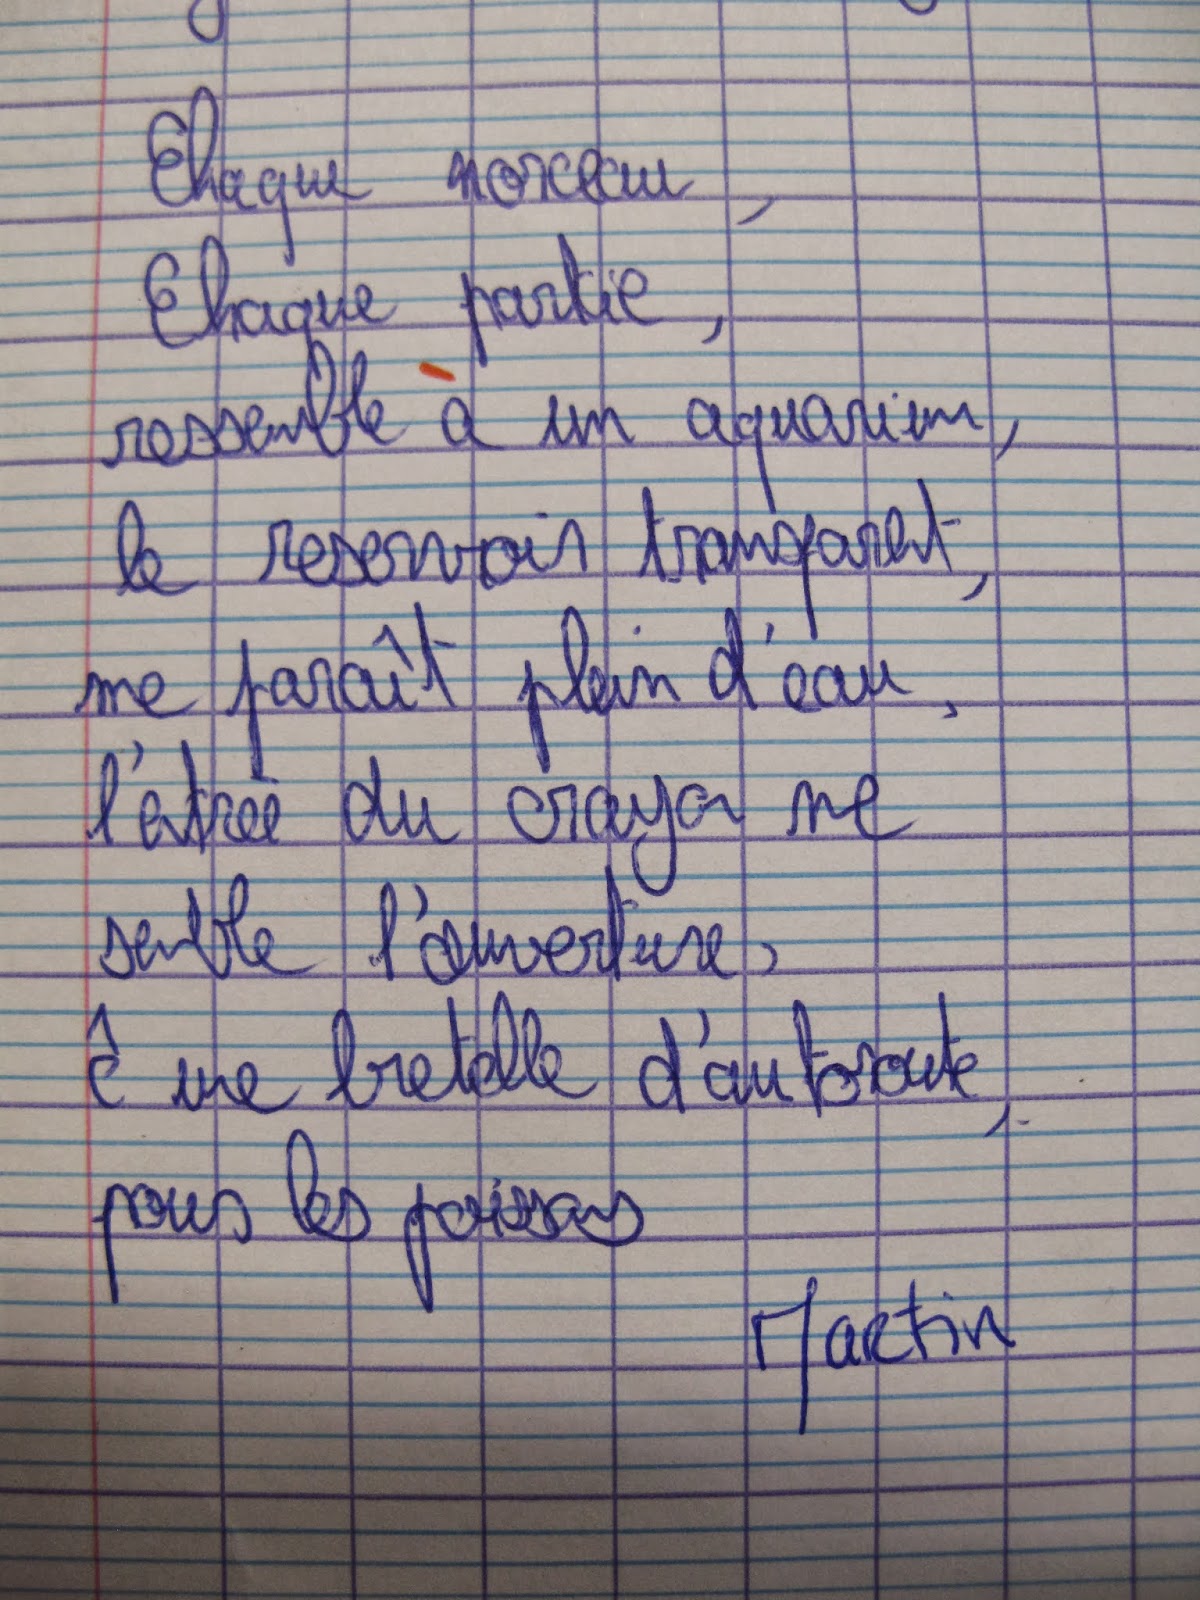 Chaque morceau,
Chaque partie,
ressemble à un aquarium,
le reservoir transparent,
me paraît plein d'eau,
l'entrée du crayon me
semble l'ouverture,
à une bretelle d'autoroute,
pour les poissons
Martin